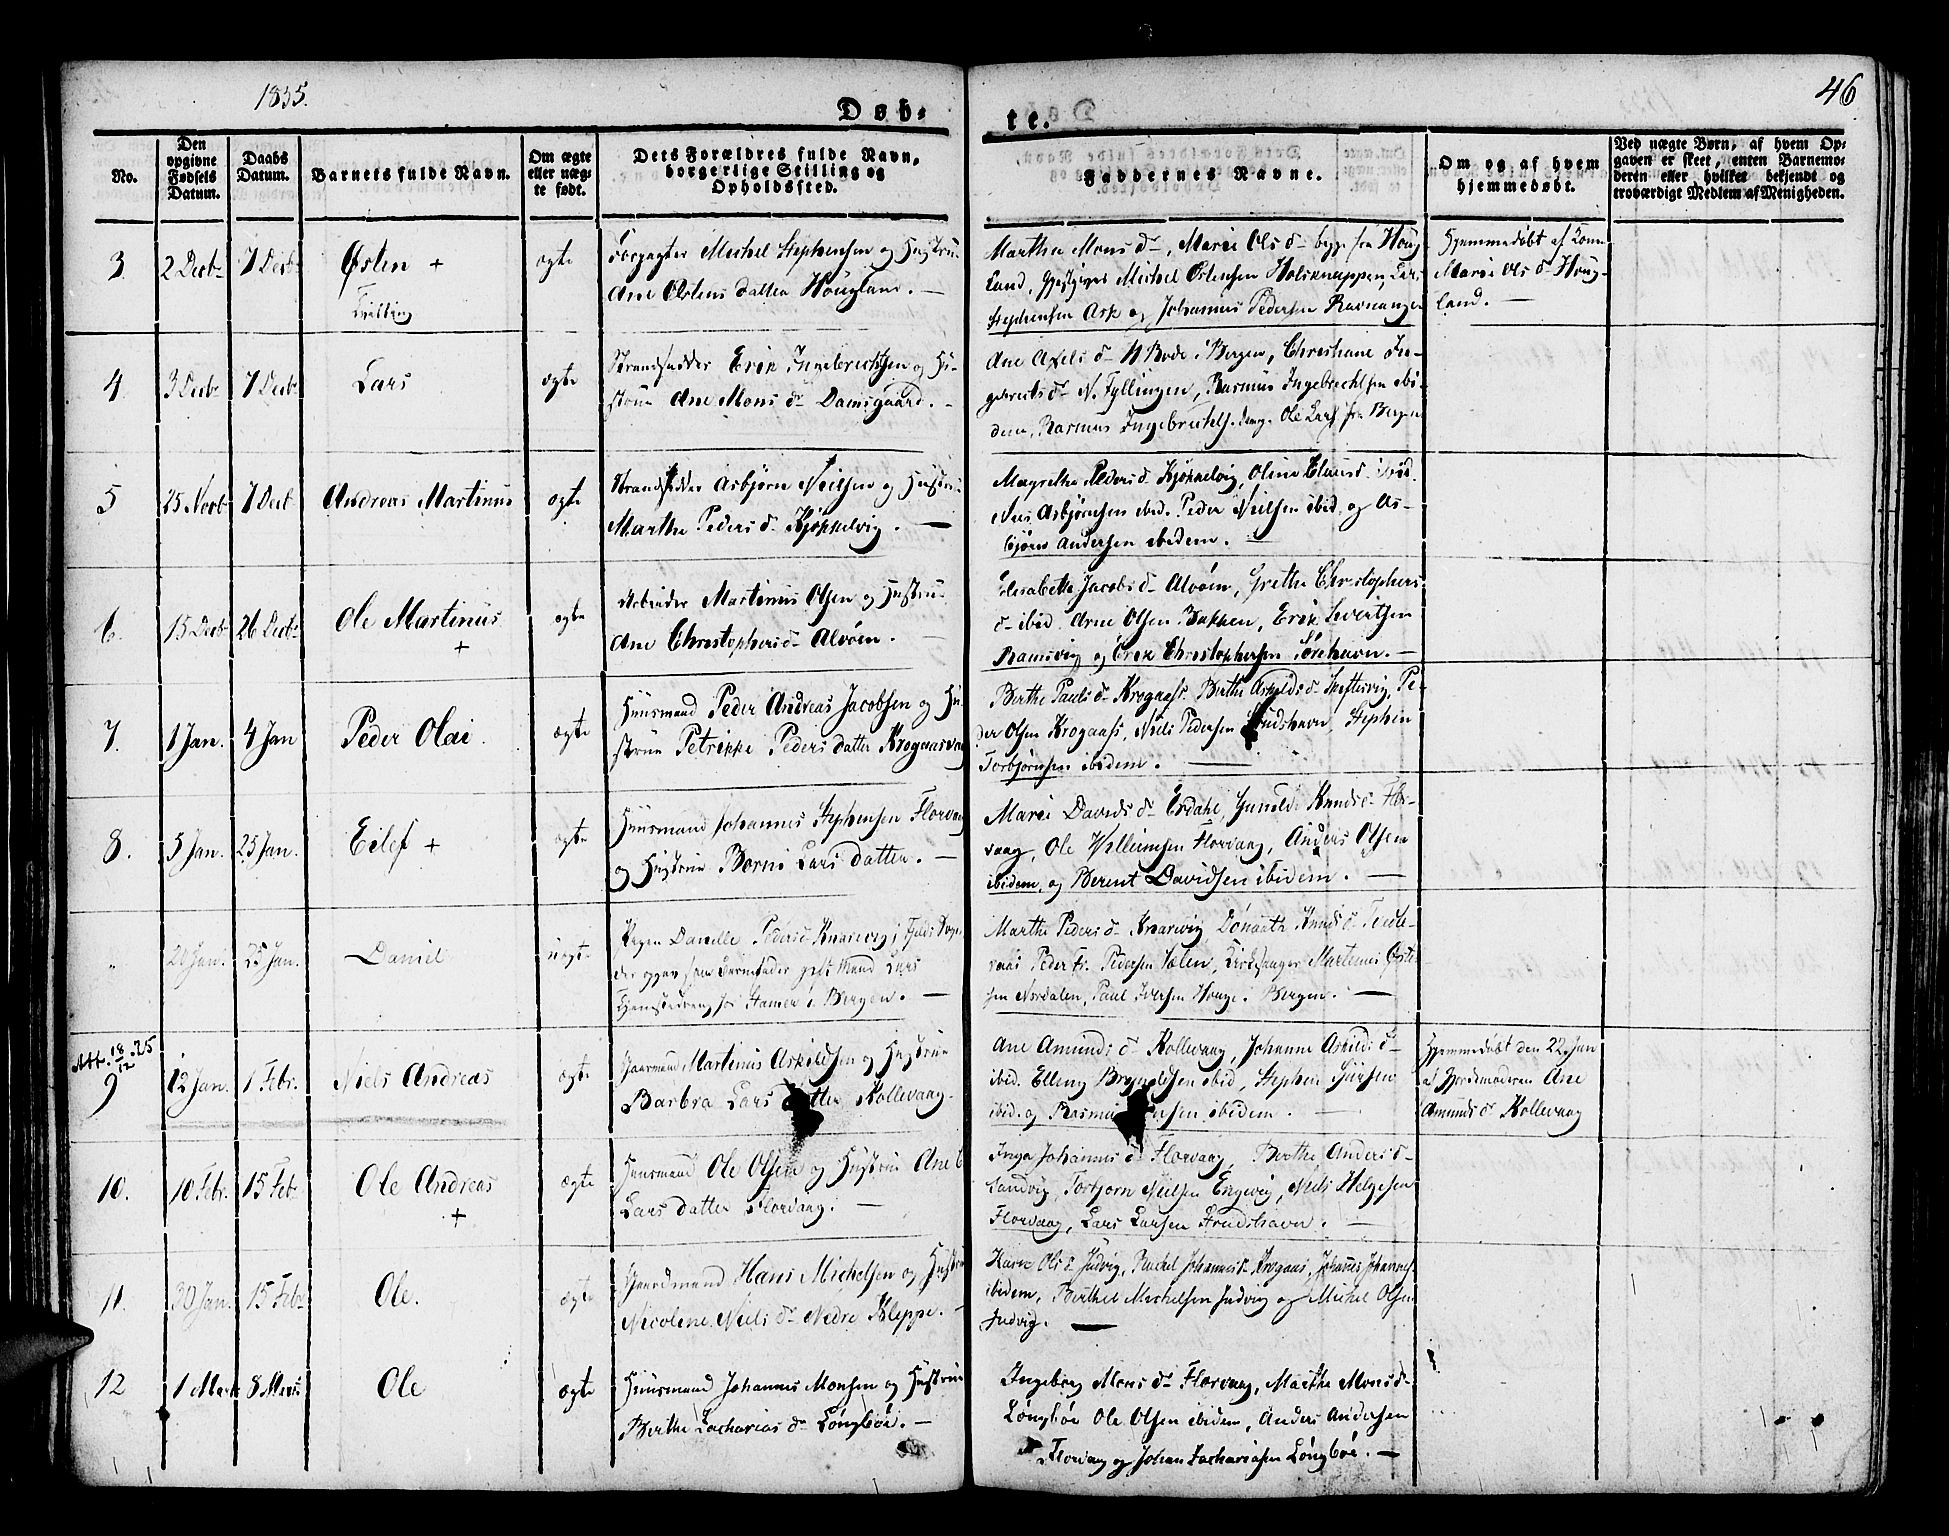 1835.
46
Døb-
te.
No.
Den opgivne Fødsels Datum.
Daabs Datum.
Barnets fulde Navn.
Om ægte eller uægte født.
Dets Forældres fulde Navn, borgerlige Stilling og Opholdsfted.
Faddernes Navne.
Om og af hvem hjemmedøbt.
Ved uægte Børn, af hvem Opgaven er skeet, enten Barnemoderen eller hvilket bekjendt og troværdigt Medlem af Menigheden.
3. 2 Decbr 7 Decbr Østen + Tvilling ægte
Michel Stephensen og Hustrue
Ane Østens datter Hougland. —
Marthe Mons dr, Marie Ols dr begge fra Houg-
land, Michel Østensen Holsknappen, Lars
Stephensen Ask og Johannes Pedersen Ravnanger
Hjemmedøbt af Kone
Marie Ols dr Houg-
land. —
4 3 Decbr 7 Decbr Lars ægte
Strandsidder Erik Ingebrechtsen og Hu-
strue Ane Mons dr Damsgaard. -
Ane Axels dr Bode i Bergen, Christiane In-
gebrets dr N. Fyllingen, Rasmus Ingebrechtsen ibi-
dem, Rasmus Ingebrechts. Ole Lars. fra Bergen
5 25 Novbr 7 Decb Andreas Martinus ægte
Strandsidder Asbjørn Neilsen og Hustrue
Marthe Peders dr Kjøkkelvig. —
Magrethe Peders dr Kjøkkelvig, Oline Claus dr ibid.
Neis Asbjørnsen ibid. Peder Neilsen ibid. og As-
bjørn Andersen ibidem. —
6. 15 Decbr 26 Decbr Ole Martinus + ægte
Arbeider Martinus Olsen og Hustrue
Ane Christophers dr Alvøen. —
Elisabeth Jacobs dr Alvøen, Grethe Christophers
dr ibid. Arne Olsen Bakken, Erik Sivertsen
Ramsvig og Erik Christophersen Sørehavn. —
7. 1 Jan. 4 Jan Peder Olai. ægte
Huusmand Peder Andreas Jacobsen og Hu-
strue Petrikke Peders datter Krogaasvaag
Berthe Pauls dr Krogaas. Berthe Askilds dr Skiftesvig, Pe-
der Olsen Krogaas, Niels Pedersen Strudshavn, Stephen
Torbjørnsen ibidem. —
8. 5 Jan. 25 Jan. Eilef + ægte
Huusmand Johannes Stephensen Florvaag
og Hustrue Borni Lars datter. —
Marie Davids dr Erdahl, Gunild Knuds dr Flor-
vaag, Ole Villumsen Florvaag, Anders Olsen
ibidem, og Berent Davidsen ibidem. —
" 20 Jan. 25 Jan. Daniel uægte
Pigen Danielle Peders dr Knarrevig i Fjeld
der opgav som Barnefader gift Mand Lars
fra Stamer i Bergen. —
Marthe Peders dr Knarvig, Dønaath Knuds dr Tvedte-
raas Peder Fr. Pedersen Valen, Kirkesanger Martinus Øste-
sen Nordalen, Paul Iversen Houge i Bergen. —
Att. 18/12. 25
9 12 Jan. 1 Febr. Niels Andreas ægte
Gaarmand Martinus Askildsen og Hustrue
Barbra Lars datter Kollevaag.
Ane Amunds dr Kollevaag, Johanne Askilds dr
ibid. Elling Brynildsen ibid, Stephen
ibid. og Rasmus ibidem. —
Hjemmedøbt den 22. Jan
af Gjordemoderen Ane
Amunds dr Kollevaag
10. 10 Febr. 15 Febr Ole Andreas + ægte
Huusmand Ole Olsen og Hustrue Ane
Lars datter Florvaag. —
Inga Johannes dr Florvaag, Berthe Anders dr
Landvig, Torbjørn Neilsen Engevig, Niels Helgesen
Florvaag, Lars Larsen Strudshavn. —
11. 30 Jan. 15 Febr Ole. ægte
Gaardmand Hans Michelsen og Hustrue
Nicoline Niels dr Nedre Kleppe. —
Karen Ols dr Judvig, Rachel Johannes dr Krogaas, Johannes Johannes.
ibidem, Berthel Michelsen Judvig og Michel Olsen
Judvig. —
12 1 Marts 8 Marts Ole ægte
Huusmand Johannes Monsen og Hustrue
Berthe Zacharias dr Løngbøe. —
Ingeborg Mons dr Florvaag, Marthe Mons dr
Løngbøe Ole Olsen ibidem, Anders Andersen
Florvaag og Johan Zachariasen Løngbøe. —